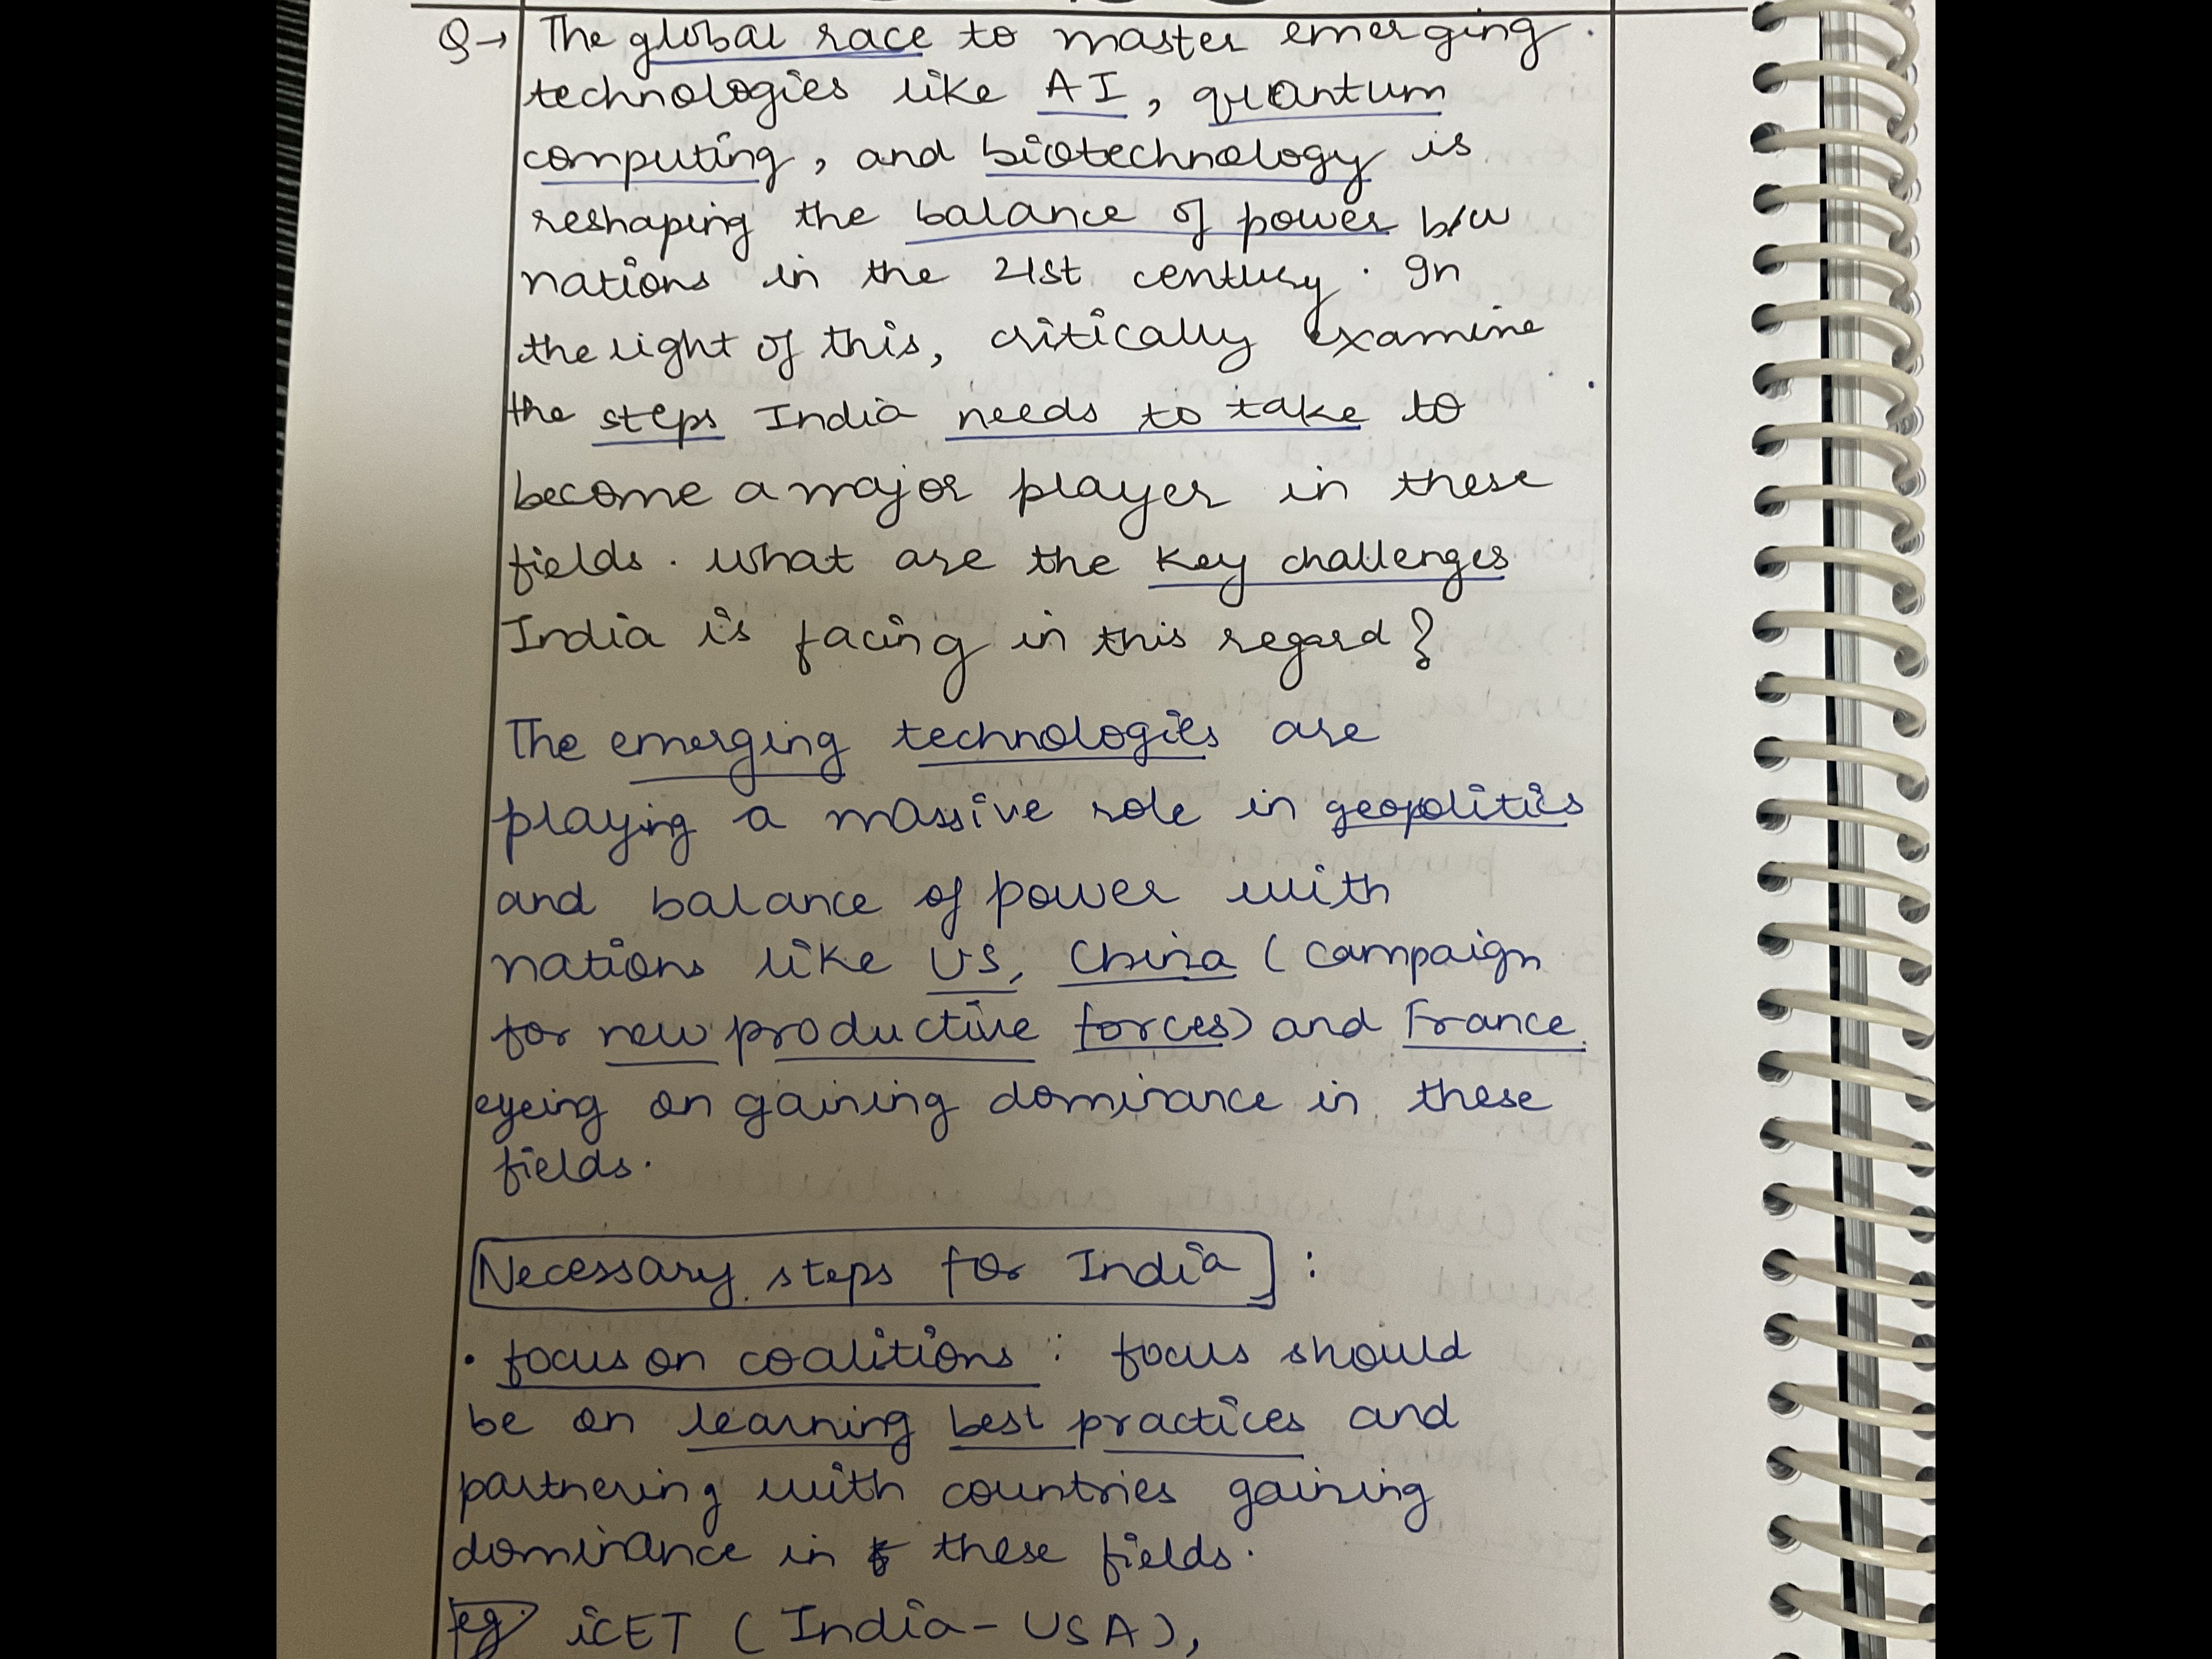 Q→ The global race to master emerging
technologies like AI, quantum
computing, and biotechnology is
reshaping the balance of power b/w
nations in the 21st century. In
the light of this, critically examine
the steps India needs to take to
become a major player in these
fields. What are the key challenges
India is facing in this regard?
The emerging technologies are
playing a massive role in geopolitics
and balance of power with
nations like US, China (campaign
for new productive forces) and France
eyeing on gaining dominance in these
fields.
Necessary steps for India :
• focus on coalitions : focus should
be on learning best practices and
partnering with countries gaining
dominance in these fields.
eg. iCET (India-USA),